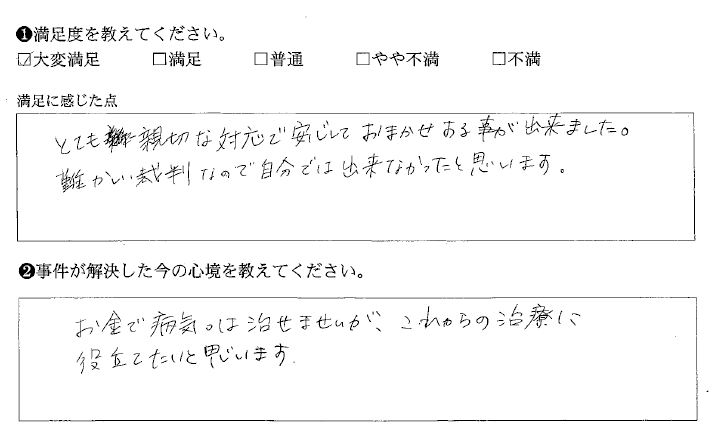 ❶満足度を教えてください。
☑大変満足 □満足 □普通 □やや不満 □不満
満足に感じた点
とても親切な対応で安心しておまかせする事が出来ました。
難かしい裁判なので自分では出来なかったと思います。
❷事件が解決した今の心境を教えてください。
お金で病気は治せませんが、これからの治療に
役立てたいと思います。